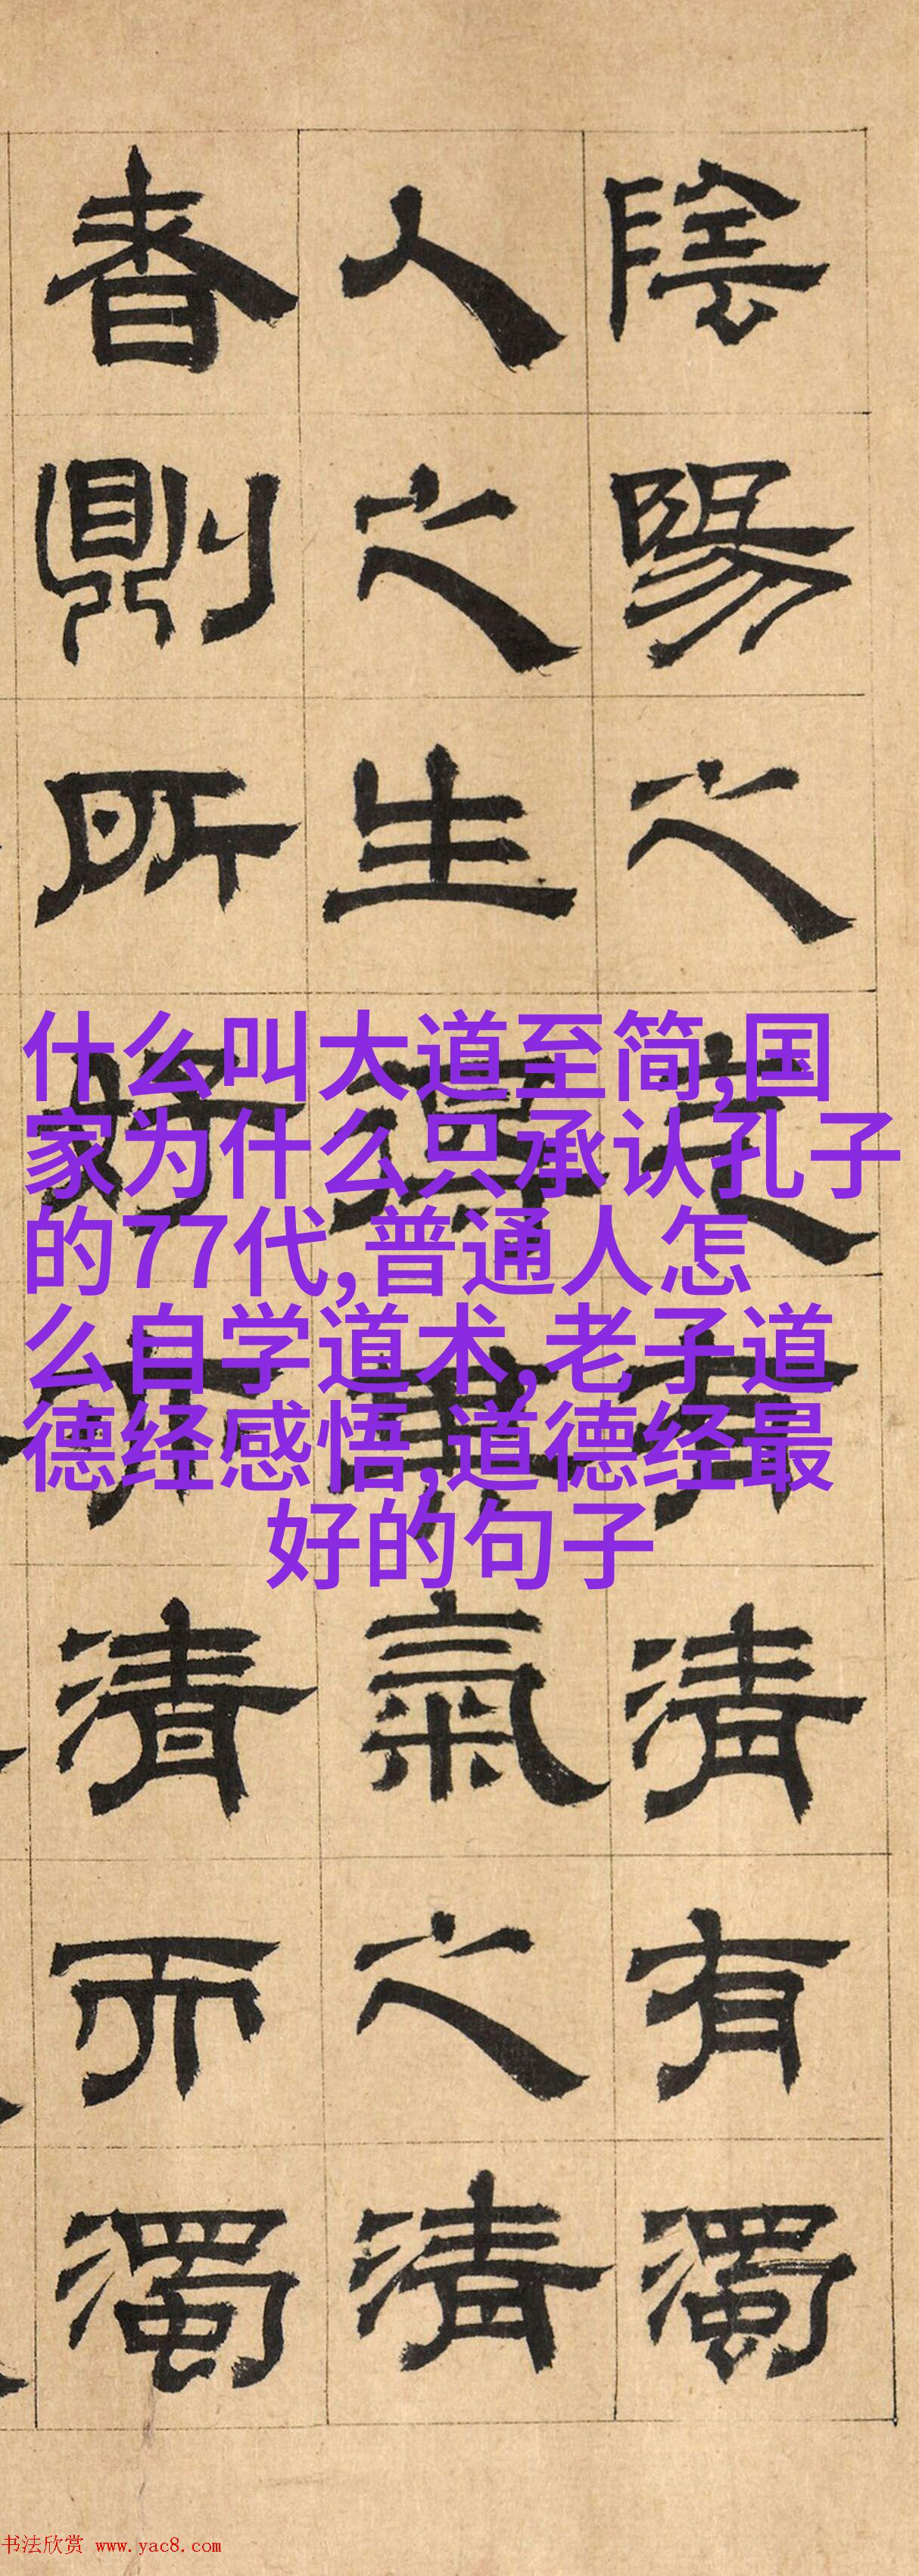 陰陽之有清有濁
人之生氣之清
者則所好清而濁
什么叫大道至简,国
家为什么只承认孔子
的77代,普通人怎
么自学道术,老子道
德经感悟,道德经最
好的句子
书法欣赏 www.yac8.com